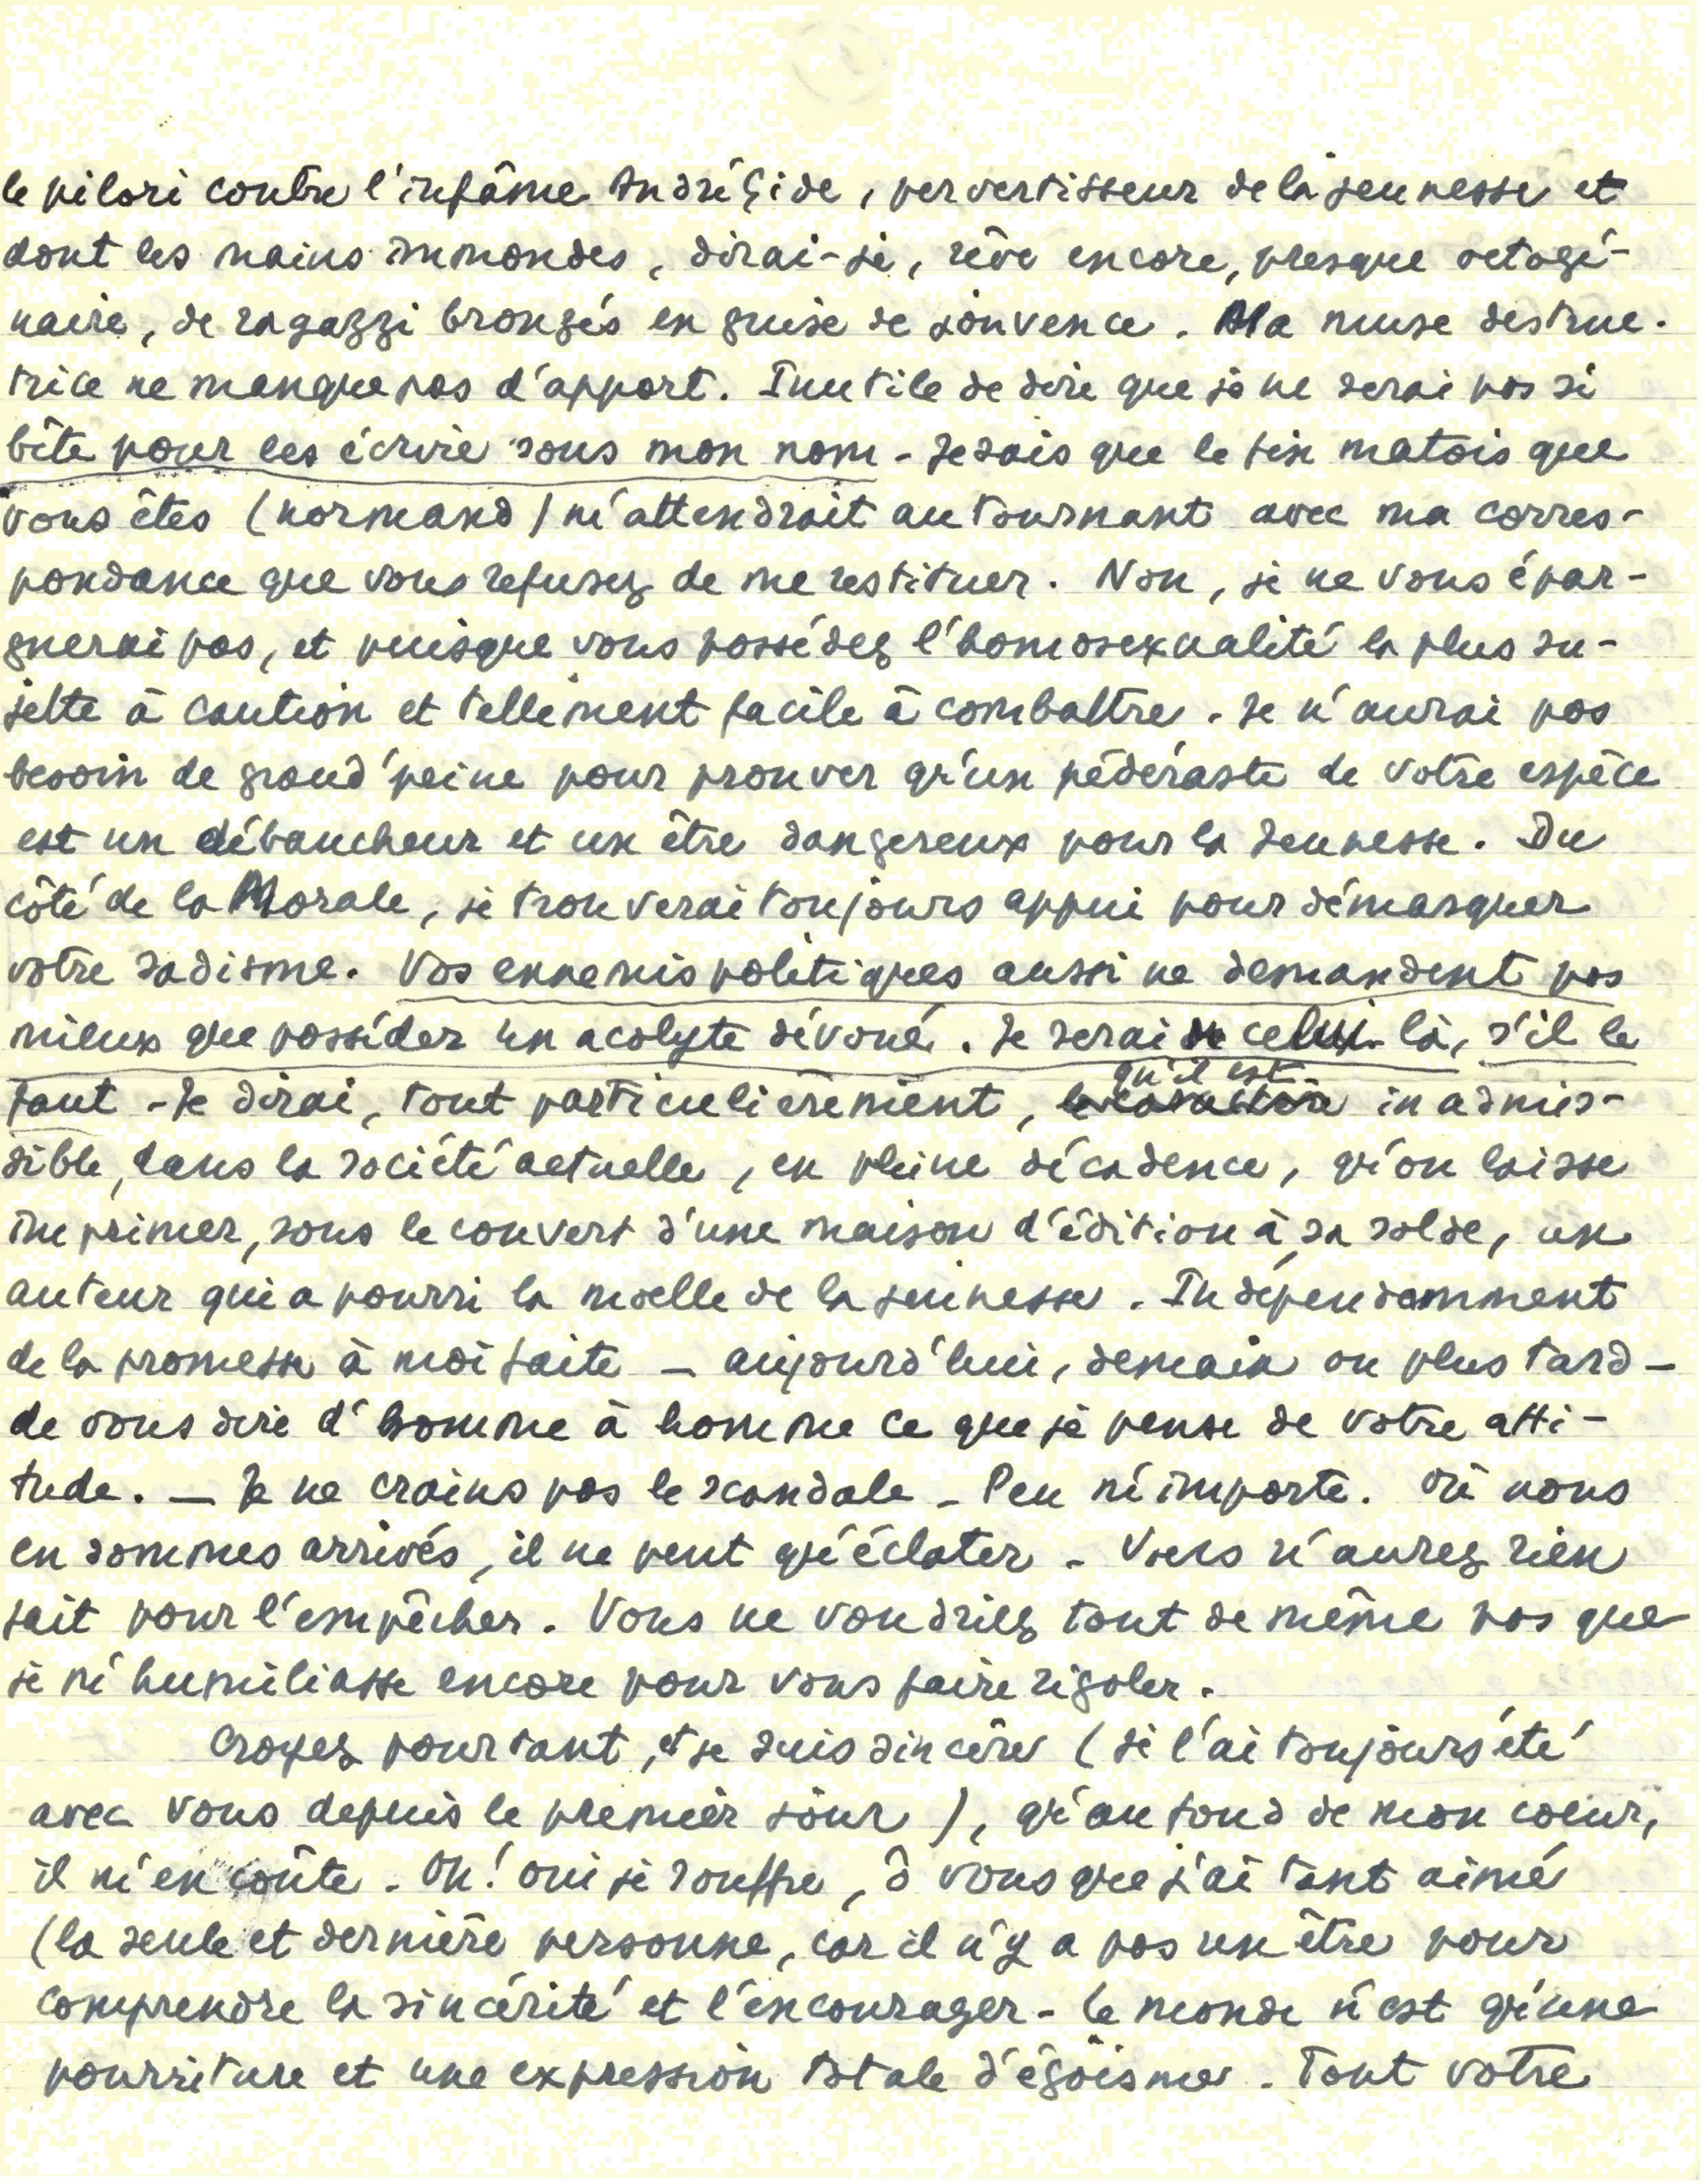 le pilori contre l'infâme André Gide, pervertisseur de la jeunesse et
dont les mains immondes, dirai-je, rêve encore, presque octogé-
naire, de ragazzi bronzés en guise de jouvence. Ma muse destruc-
trice ne manque pas d'apport. Inutile de dire que je ne serai pas si
bête pour les écrire sous mon nom - Je sais que le fin matois que
vous êtes (normand) m'attendrait au tournant avec ma corres-
pondance que vous refusez de me restituer. Non, je ne vous épar-
gnerai pas, et puisque vous possédez l'homosexualité la plus su-
jette à caution et tellement facile à combattre. Je n'aurai pas
besoin de grand'peine pour prouver qu'un pédéraste de votre espèce
est un débaucheur et un être dangereux pour la jeunesse. Du
côté de la Morale, je trouverai toujours appui pour démasquer
votre sadisme. Vos ennemis politiques aussi ne demandent pas
mieux que posséder un acolyte dévoué. Je serai celui-là, s'il le
faut - Je dirai, tout particulièrement, qu'il est inadmis-
sible, dans la société actuelle, en pleine décadence, qu'on laisse
imprimer, sous le couvert d'une maison d'édition à sa solde, un
auteur qui a pourri la moelle de la jeunesse. Indépendamment
de la promesse à moi faite - aujourd'hui, demain ou plus tard -
de vous dire d'homme à homme ce que je pense de votre atti-
tude. - Je ne crains pas le scandale - Peu m'importe. Où nous
en sommes arrivés, il ne peut qu'éclater - Vous n'aurez rien
fait pour l'empêcher. Vous ne voudriez tout de même pas que
je m'humiliasse encore pour vous faire rigoler.
Croyez pourtant, et je suis sincère (je l'ai toujours été
avec vous depuis le premier jour), qu'au fond de mon coeur,
il m'en coûte. Oh! oui je souffre, ô vous que j'ai tant aimé
(la seule et dernière personne, car il n'y a pas un être pour
comprendre la sincérité et l'encourager - Le monde n'est qu'une
pourriture et une expression totale d'égoïsme. Tout votre